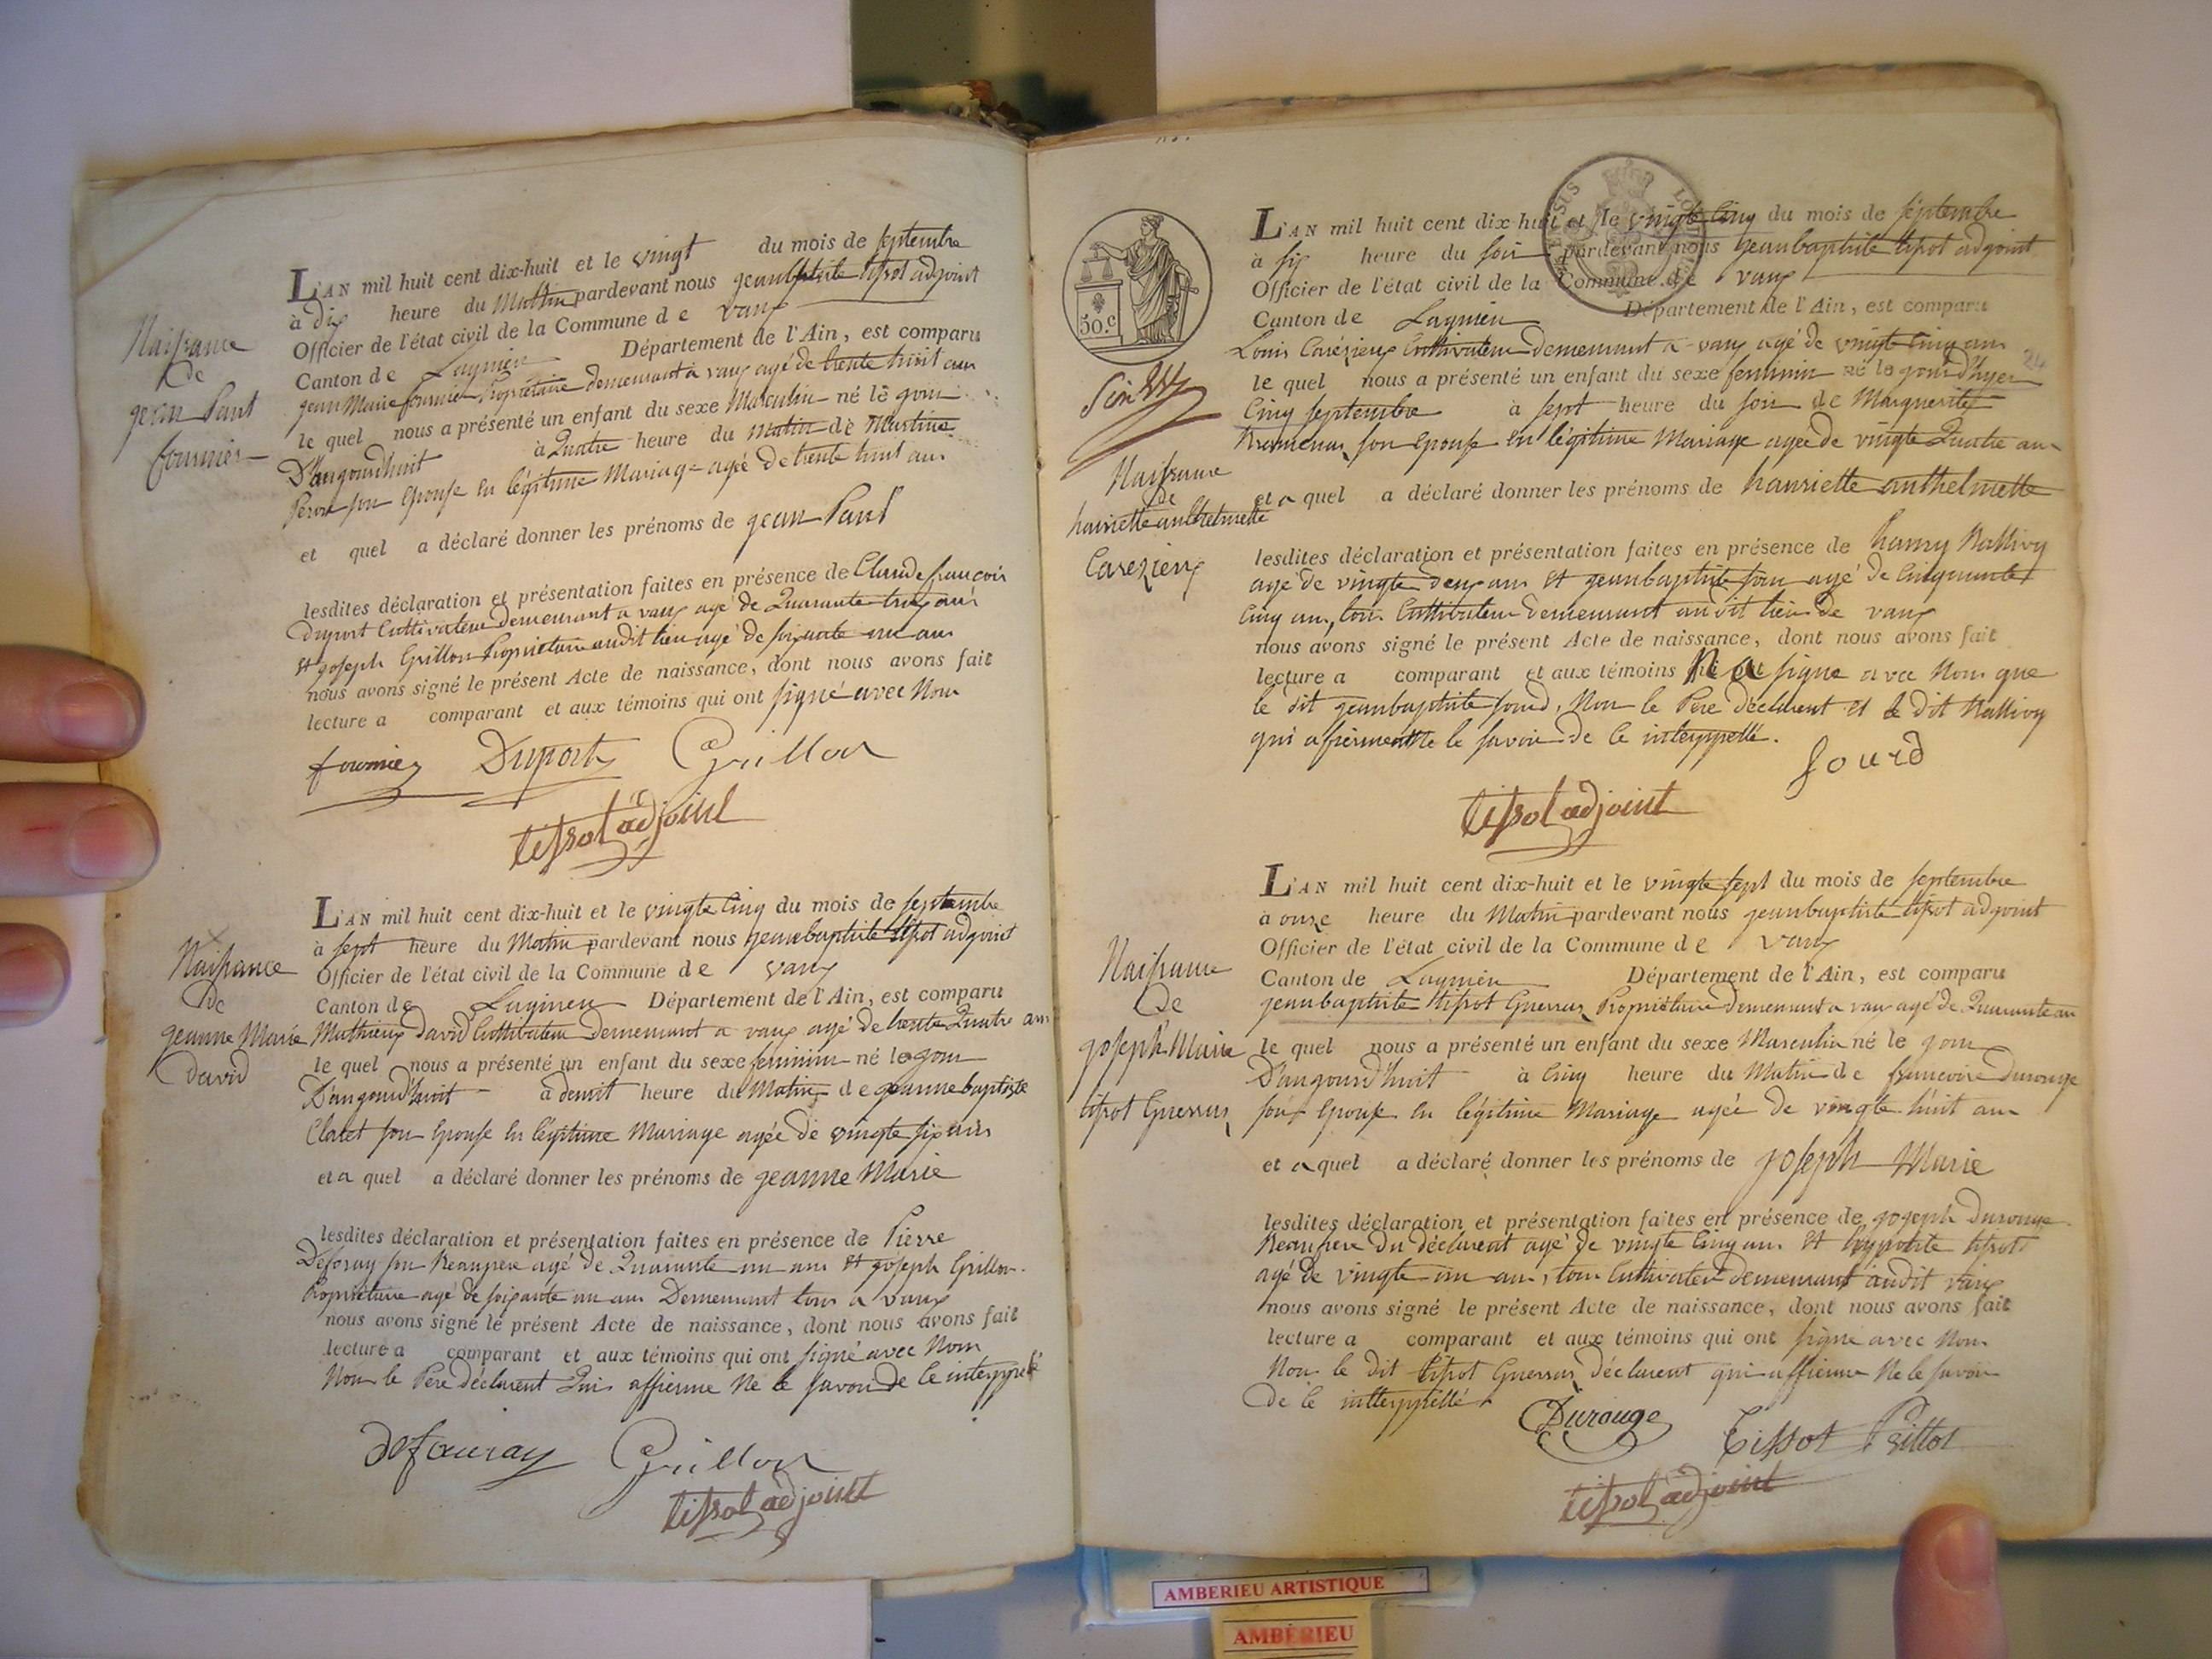 Naissance
de
jean Paul
fournier
L'AN mil huit cent dix-huit et le vingt du mois de septembre
à dix heure du Matin pardevant nous jeanbaptiste tissot adjoint
Officier de l'état civil de la Commune de vaux
Canton de Lagnieu Département de l'Ain, est comparu
jean Marie fournier Propriétaire demeurant a vaux agé de trente huit ans
le quel nous a présenté un enfant du sexe Masculin né le jour
D'aujourd'huit à Quatre heure du Matin de Martine
Peron son Epouse en légitime Mariage agée de trente huit ans
et quel a déclaré donner les prénoms de jean Paul
lesdites déclaration et présentation faites en présence de Claude francois
Duport Cultivateur demeurant a vaux agé de Quarante trois ans
et joseph Grillon Propriétaire audit lieu agé de soixante un ans
nous avons signé le présent Acte de naissance, dont nous avons fait
lecture a comparant et aux témoins qui ont signé avec Nous
fournier Duport Grillon
tissot adjoint
Naissance
de
jeanne Marie
david
L'AN mil huit cent dix-huit et le vingte Cinq du mois de septembre
à sept heure du Matin pardevant nous jeanbaptiste tissot adjoint
Officier de l'état civil de la Commune de vaux
Canton de Lagnieu Département de l'Ain, est comparu
Mathieux david Cultivateur Demeurant a vaux agé de trente Quatre ans
le quel nous a présenté un enfant du sexe feminin né le jour
D'aujourd'huit à heure du Matin de jeanne baptiste
Claret son Epouse en légitime Mariage agée de vingte six ans
et a quel a déclaré donner les prénoms de jeanne Marie
lesdites déclaration et présentation faites en présence de Pierre
Deforay son Beaupere agé de Quarante un ans et joseph Grillon
Propriétaire agé de soixante un ans Demeurant tous a vaux
nous avons signé le présent Acte de naissance, dont nous avons fait
lecture a comparant et aux témoins qui ont signé avec Nous
Non le Pere déclarent Qui affirme Ne le savoir de ce interppellé
Defouray Grillon
tissot adjoint
50.c
24
Naissance
de
hanriette anthelmette
Carezieux
L'AN mil huit cent dix-huit et le vingte Cinq du mois de septembre
à six heure du soir pardevant nous jeanbaptiste tissot adjoint
Officier de l'état civil de la Commune de vaux
Canton de Lagnieu Département de l'Ain, est comparu
Louis Carézieux Cultivateur demeurant a vaux agé de vingte Cinq ans
le quel nous a présenté un enfant du sexe feminin né le jourd'hyer
Cinq septembre à sept heure du soir de Marguerite
son Epouse en légitime Mariage agée de vingte Quatre ans
et a quel a déclaré donner les prénoms de hanriette anthelmette
lesdites déclaration et présentation faites en présence de hanry Rallivy
agé de vingte deux ans et jeanbaptiste sourd agé de Cinquante
Cinq ans, tous Cultivateur demeurant au dit lieu de vaux
nous avons signé le présent Acte de naissance, dont nous avons fait
lecture a comparant et aux témoins signé avec Nous que
le dit jeanbaptiste sourd, Non le Pere déclarent et le dit Rallivy
qui affirment Ne le savoir de ce interppellé.
sourd
tissot adjoint
Naissance
de
joseph Marie
tissot Guerras
L'AN mil huit cent dix-huit et le vingte sept du mois de septembre
à onze heure du Matin pardevant nous jeanbaptiste tissot adjoint
Officier de l'état civil de la Commune de vaux
Canton de Lagnieu Département de l'Ain, est comparu
jeanbaptiste tissot Guerras Propriétaire demeurant a vaux agé de Quarante ans
le quel nous a présenté un enfant du sexe Masculin né le jour
D'aujourd'huit à Cinq heure du Matin de francoise Durouge
son Epouse en légitime Mariage agée de vingte huit ans
et a quel a déclaré donner les prénoms de joseph Marie
lesdites déclaration et présentation faites en présence de joseph Durouge
Beaufrere du déclarent agé de vingte Cinq ans et hyppolite tissot
agé de vingte un ans, tous Cultivateur demeurant audit vaux
nous avons signé le présent Acte de naissance, dont nous avons fait
lecture a comparant et aux témoins qui ont signé avec Nous
Non le dit tissot Guerras déclarent qui affirme Ne le savoir
de ce intterppéllé
Durouge Tissot
tissot adjoint
AMBERIEU ARTISTIQUE
AMBÉRIEU